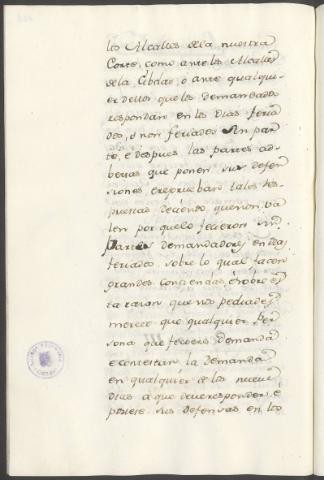 los Alcalles de la nuestra
Corte, como ante los Alcalles
de la Cibdad, o ante qualqui-
er dellos que los demandados
respondan en los dias feria
dos, o non feriados
te, e despues las partes ad-
bersas que ponen sus defen
siones, e reprueban tales res-
puestas deciendo que non va
len por que lo fecieron sin
Partes demandadores en dias
feriados, sobre lo qual facen
grandes contiendas, e sobre es
ta razon que nos pediades
merced que qualquier Per
sona que feciere demanda
e contestare la Demanda
en qualquier de los nueve
Dias a que deve responder, e
posiere sus defensas en los